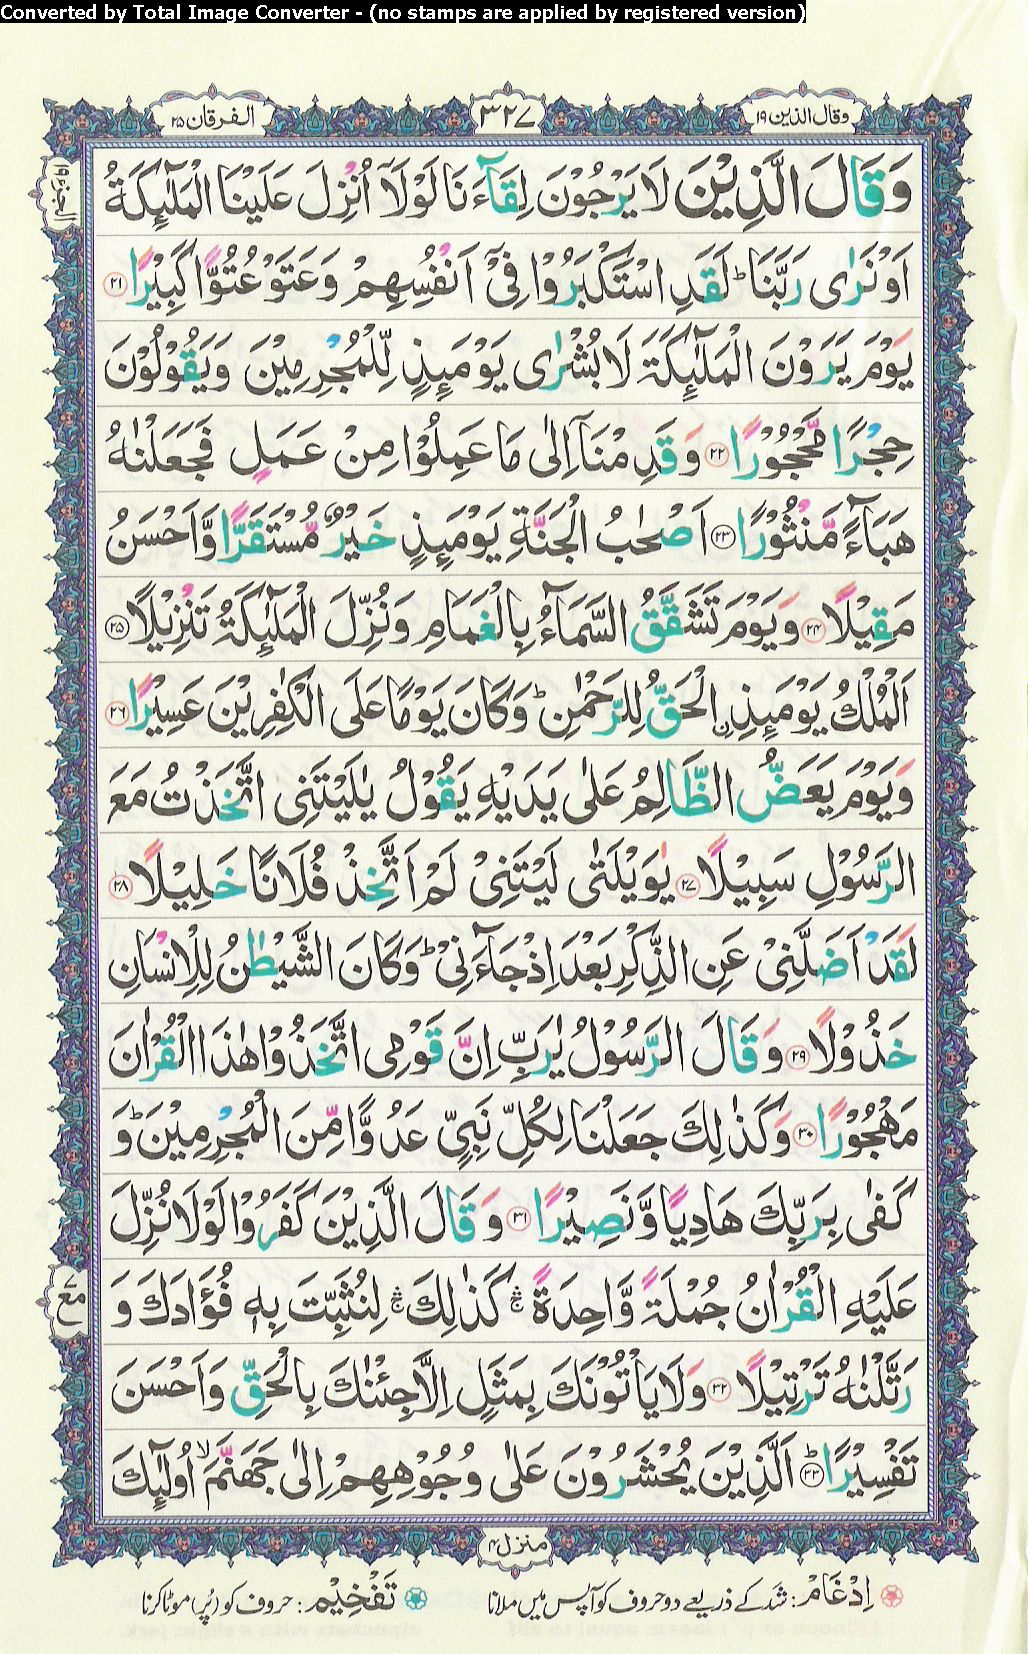 Converted by Total Image Converter - (no stamps are applied by registered version)
وقال الذين ١٩
٣٢٧
الفرقان ٢٥
الجزء ١٩
وَقَالَ الَّذِيْنَ لَا يَرْجُوْنَ لِقَآءَنَا لَوْلَاۤ اُنْزِلَ عَلَيْنَا الْمَلٰٓئِكَةُ
اَوْ نَرٰى رَبَّنَا ؕ لَقَدِ اسْتَكْبَرُوْا فِىْۤ اَنْفُسِهِمْ وَعَتَوْ عُتُوًّا كَبِيْرًا ﴿۲۱﴾
يَوْمَ يَرَوْنَ الْمَلٰٓئِكَةَ لَا بُشْرٰى يَوْمَئِذٍ لِّلْمُجْرِمِيْنَ وَيَقُوْلُوْنَ
حِجْرًا مَّحْجُوْرًا ﴿۲۲﴾ وَقَدِمْنَاۤ اِلٰى مَا عَمِلُوْا مِنْ عَمَلٍ فَجَعَلْنٰهُ
هَبَآءً مَّنْثُوْرًا ﴿۲۳﴾ اَصْحٰبُ الْجَنَّةِ يَوْمَئِذٍ خَيْرٌ مُّسْتَقَرًّا وَّاَحْسَنُ
مَقِيْلًا ﴿۲۴﴾ وَيَوْمَ تَشَقَّقُ السَّمَآءُ بِالْغَمَامِ وَنُزِّلَ الْمَلٰٓئِكَةُ تَنْزِيْلًا ﴿۲۵﴾
اَلْمُلْكُ يَوْمَئِذِ ۨالْحَقُّ لِلرَّحْمٰنِ ؕ وَكَانَ يَوْمًا عَلَى الْكٰفِرِيْنَ عَسِيْرًا ﴿۲۶﴾
وَيَوْمَ يَعَضُّ الظَّالِمُ عَلٰى يَدَيْهِ يَقُوْلُ يٰلَيْتَنِى اتَّخَذْتُ مَعَ
الرَّسُوْلِ سَبِيْلًا ﴿۲۷﴾ يٰوَيْلَتٰى لَيْتَنِىْ لَمْ اَتَّخِذْ فُلَانًا خَلِيْلًا ﴿۲۸﴾
لَقَدْ اَضَلَّنِىْ عَنِ الذِّكْرِ بَعْدَ اِذْ جَآءَنِىْ ؕ وَكَانَ الشَّيْطٰنُ لِلْاِنْسَانِ
خَذُوْلًا ﴿۲۹﴾ وَقَالَ الرَّسُوْلُ يٰرَبِّ اِنَّ قَوْمِى اتَّخَذُوْا هٰذَا الْقُرْاٰنَ
مَهْجُوْرًا ﴿۳۰﴾ وَكَذٰلِكَ جَعَلْنَا لِكُلِّ نَبِىٍّ عَدُوًّا مِّنَ الْمُجْرِمِيْنَ ؕ وَ
كَفٰى بِرَبِّكَ هَادِيًا وَّنَصِيْرًا ﴿۳۱﴾ وَقَالَ الَّذِيْنَ كَفَرُوْا لَوْلَا نُزِّلَ
عَلَيْهِ الْقُرْاٰنُ جُمْلَةً وَّاحِدَةً ۛۚ كَذٰلِكَ ۛۚ لِنُثَبِّتَ بِهٖ فُؤَادَكَ وَ
مع
رَتَّلْنٰهُ تَرْتِيْلًا ﴿۳۲﴾ وَلَا يَاْتُوْنَكَ بِمَثَلٍ اِلَّا جِئْنٰكَ بِالْحَقِّ وَاَحْسَنَ
تَفْسِيْرًا ؕ ﴿۳۳﴾ اَلَّذِيْنَ يُحْشَرُوْنَ عَلٰى وُجُوْهِهِمْ اِلٰى جَهَنَّمَ ۙ اُولٰٓئِكَ
منزل ۴
اِدْغَام: شد کے ذریعے دو حروف کو آپس میں ملانا
تَفْخِيْم: حروف کو (پُر) موٹا کرنا